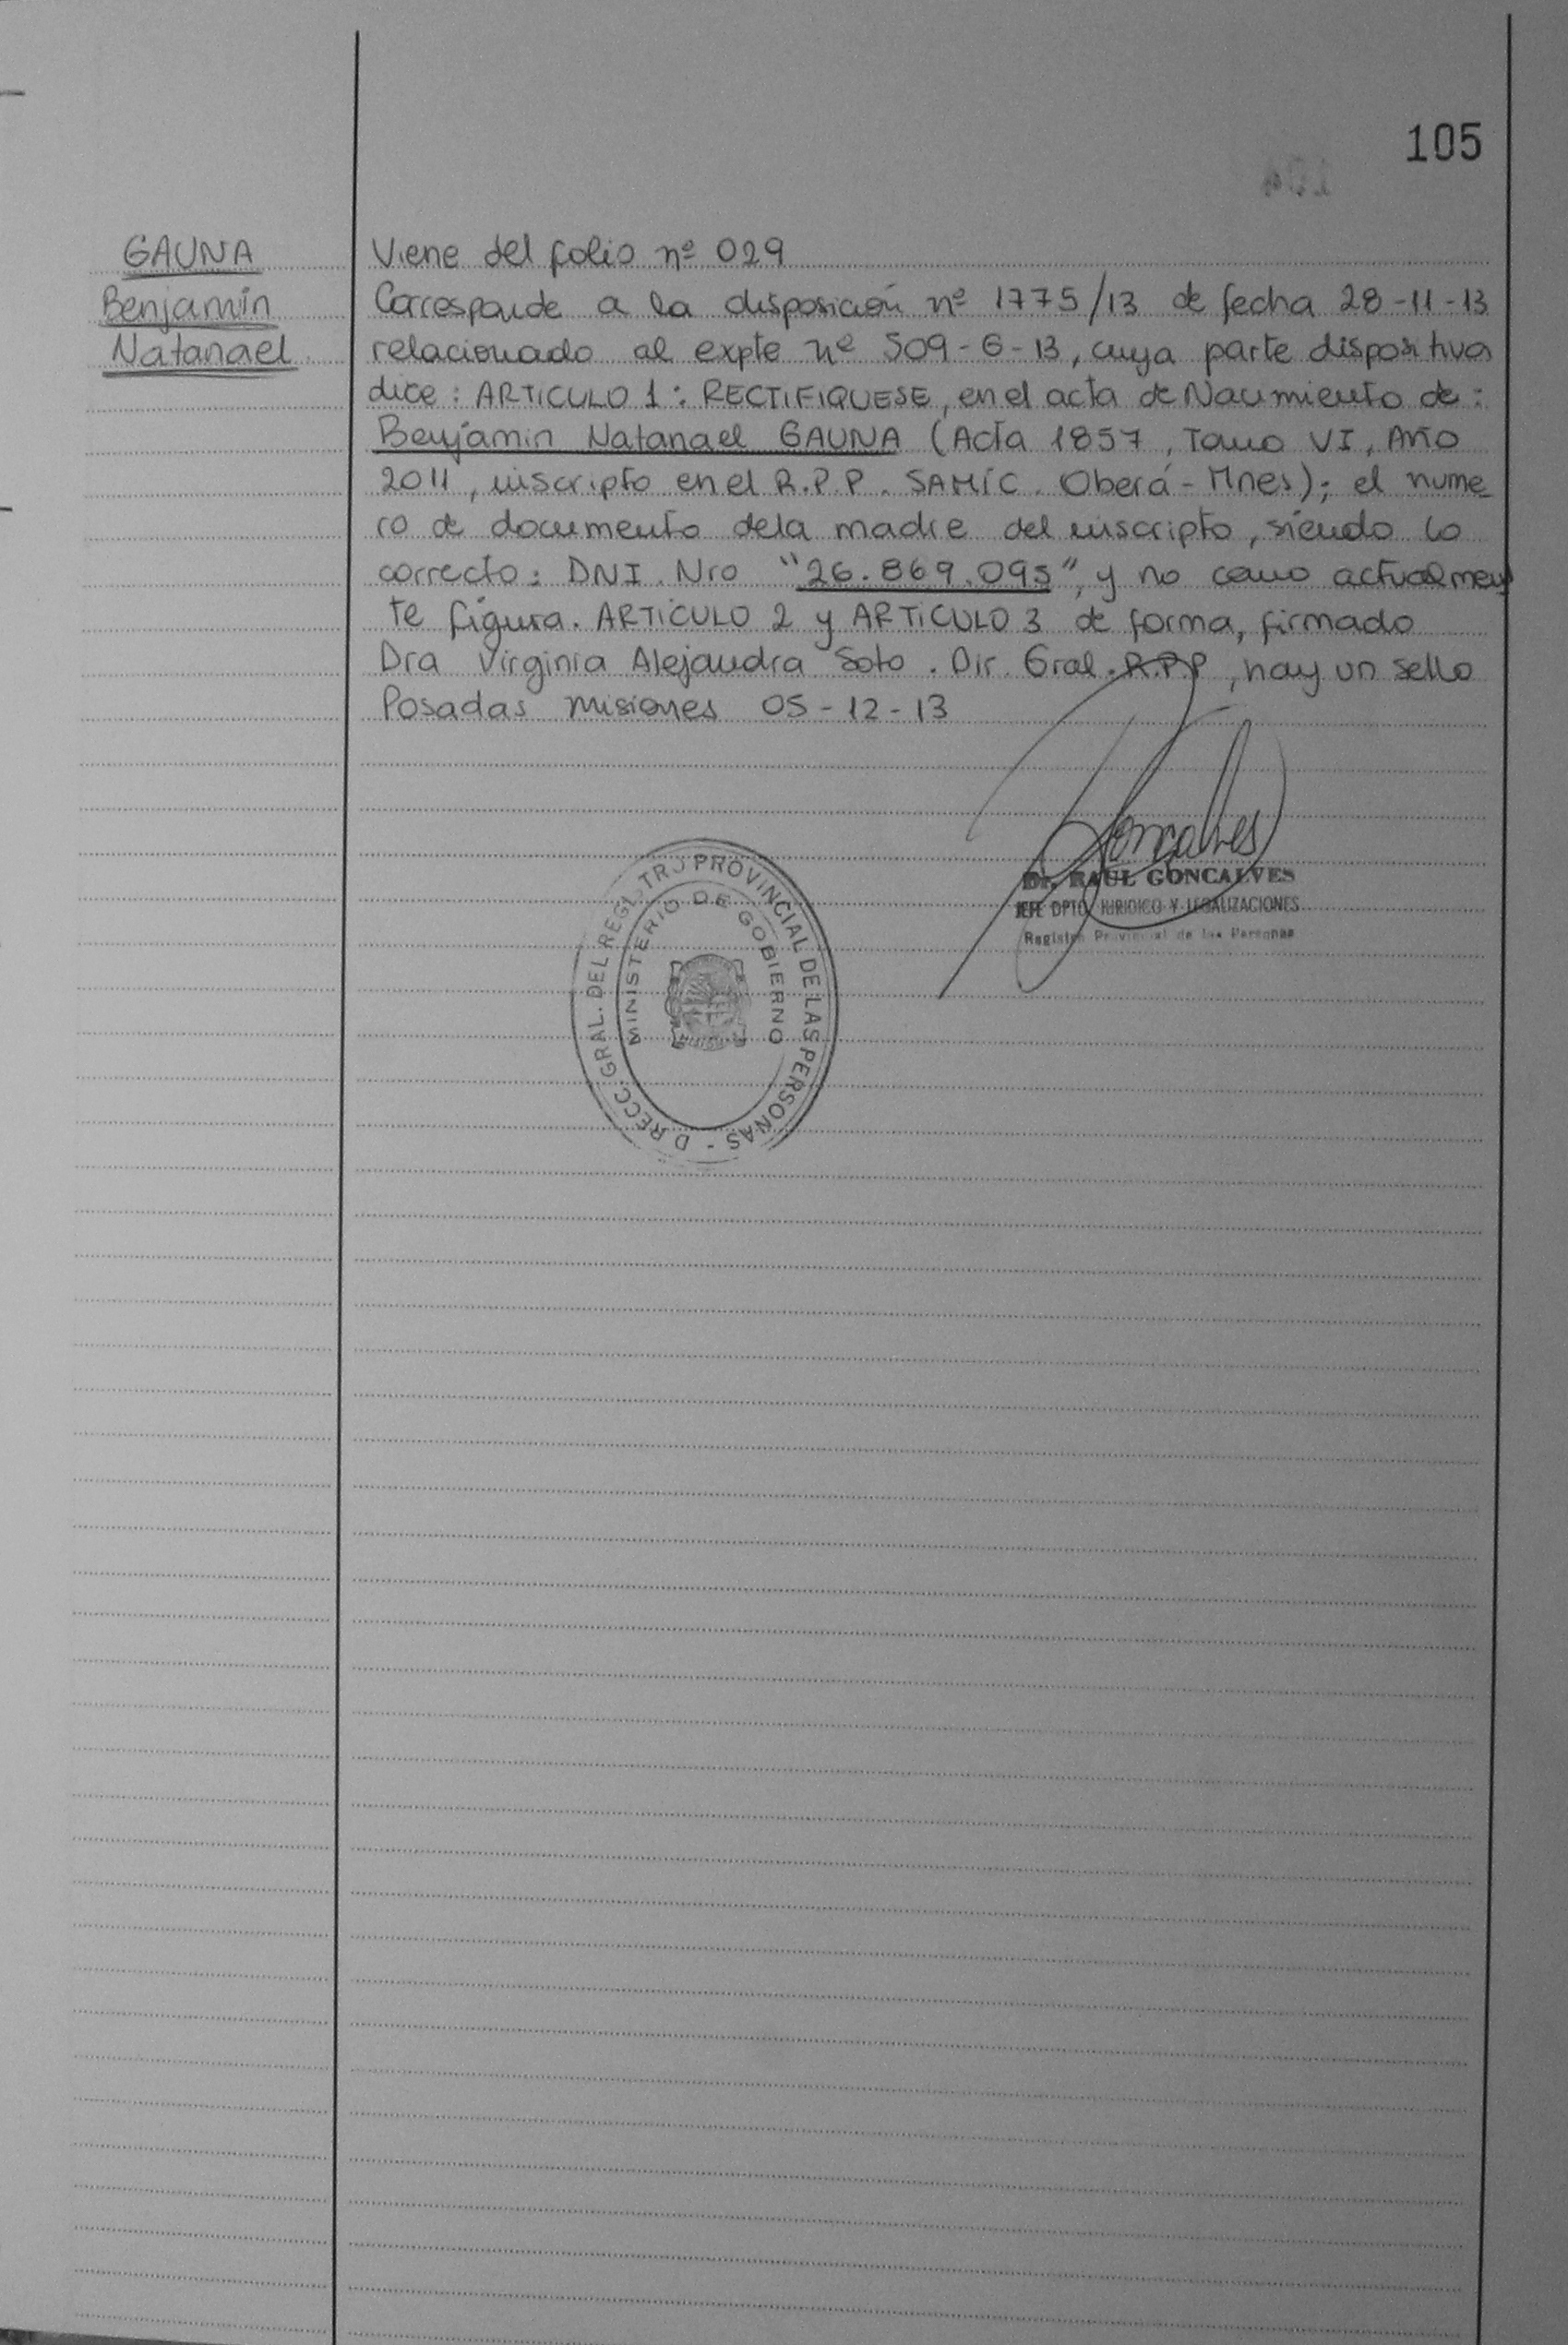 105
GAUNA
Benjamín
Natanael.
Viene del folio nº 029
Corresponde a la disposición nº 1775/13 de fecha 28-11-13
relacionado al expte nº 509-G-13, cuya parte dispositiva
dice: ARTICULO 1: RECTIFIQUESE, en el acta de Nacimiento de:
Benjamin Natanael GAUNA (Acta 1857, Tomo VI, Año
2011, inscripto en el R.P.P. SAMIC. Oberá-Mnes); el nume
ro de documento dela madre del inscripto, siendo lo
correcto: DNI. Nro "26.869.095", y no como actualmen
te figura. ARTICULO 2 y ARTICULO 3 de forma, firmado
Dra Virginia Alejandra Soto. Dir. Gral. R.P.P, hay un sello
Posadas misiones 05-12-13
Goncalves
Dr. RAUL GONCALVES
JEFE DPTO. JURIDICO Y LEGALIZACIONES
Registro Provincial de las Personas
DIRECC. GRAL. DEL REGISTRO PROVINCIAL DE LAS PERSONAS -
MINISTERIO DE GOBIERNO